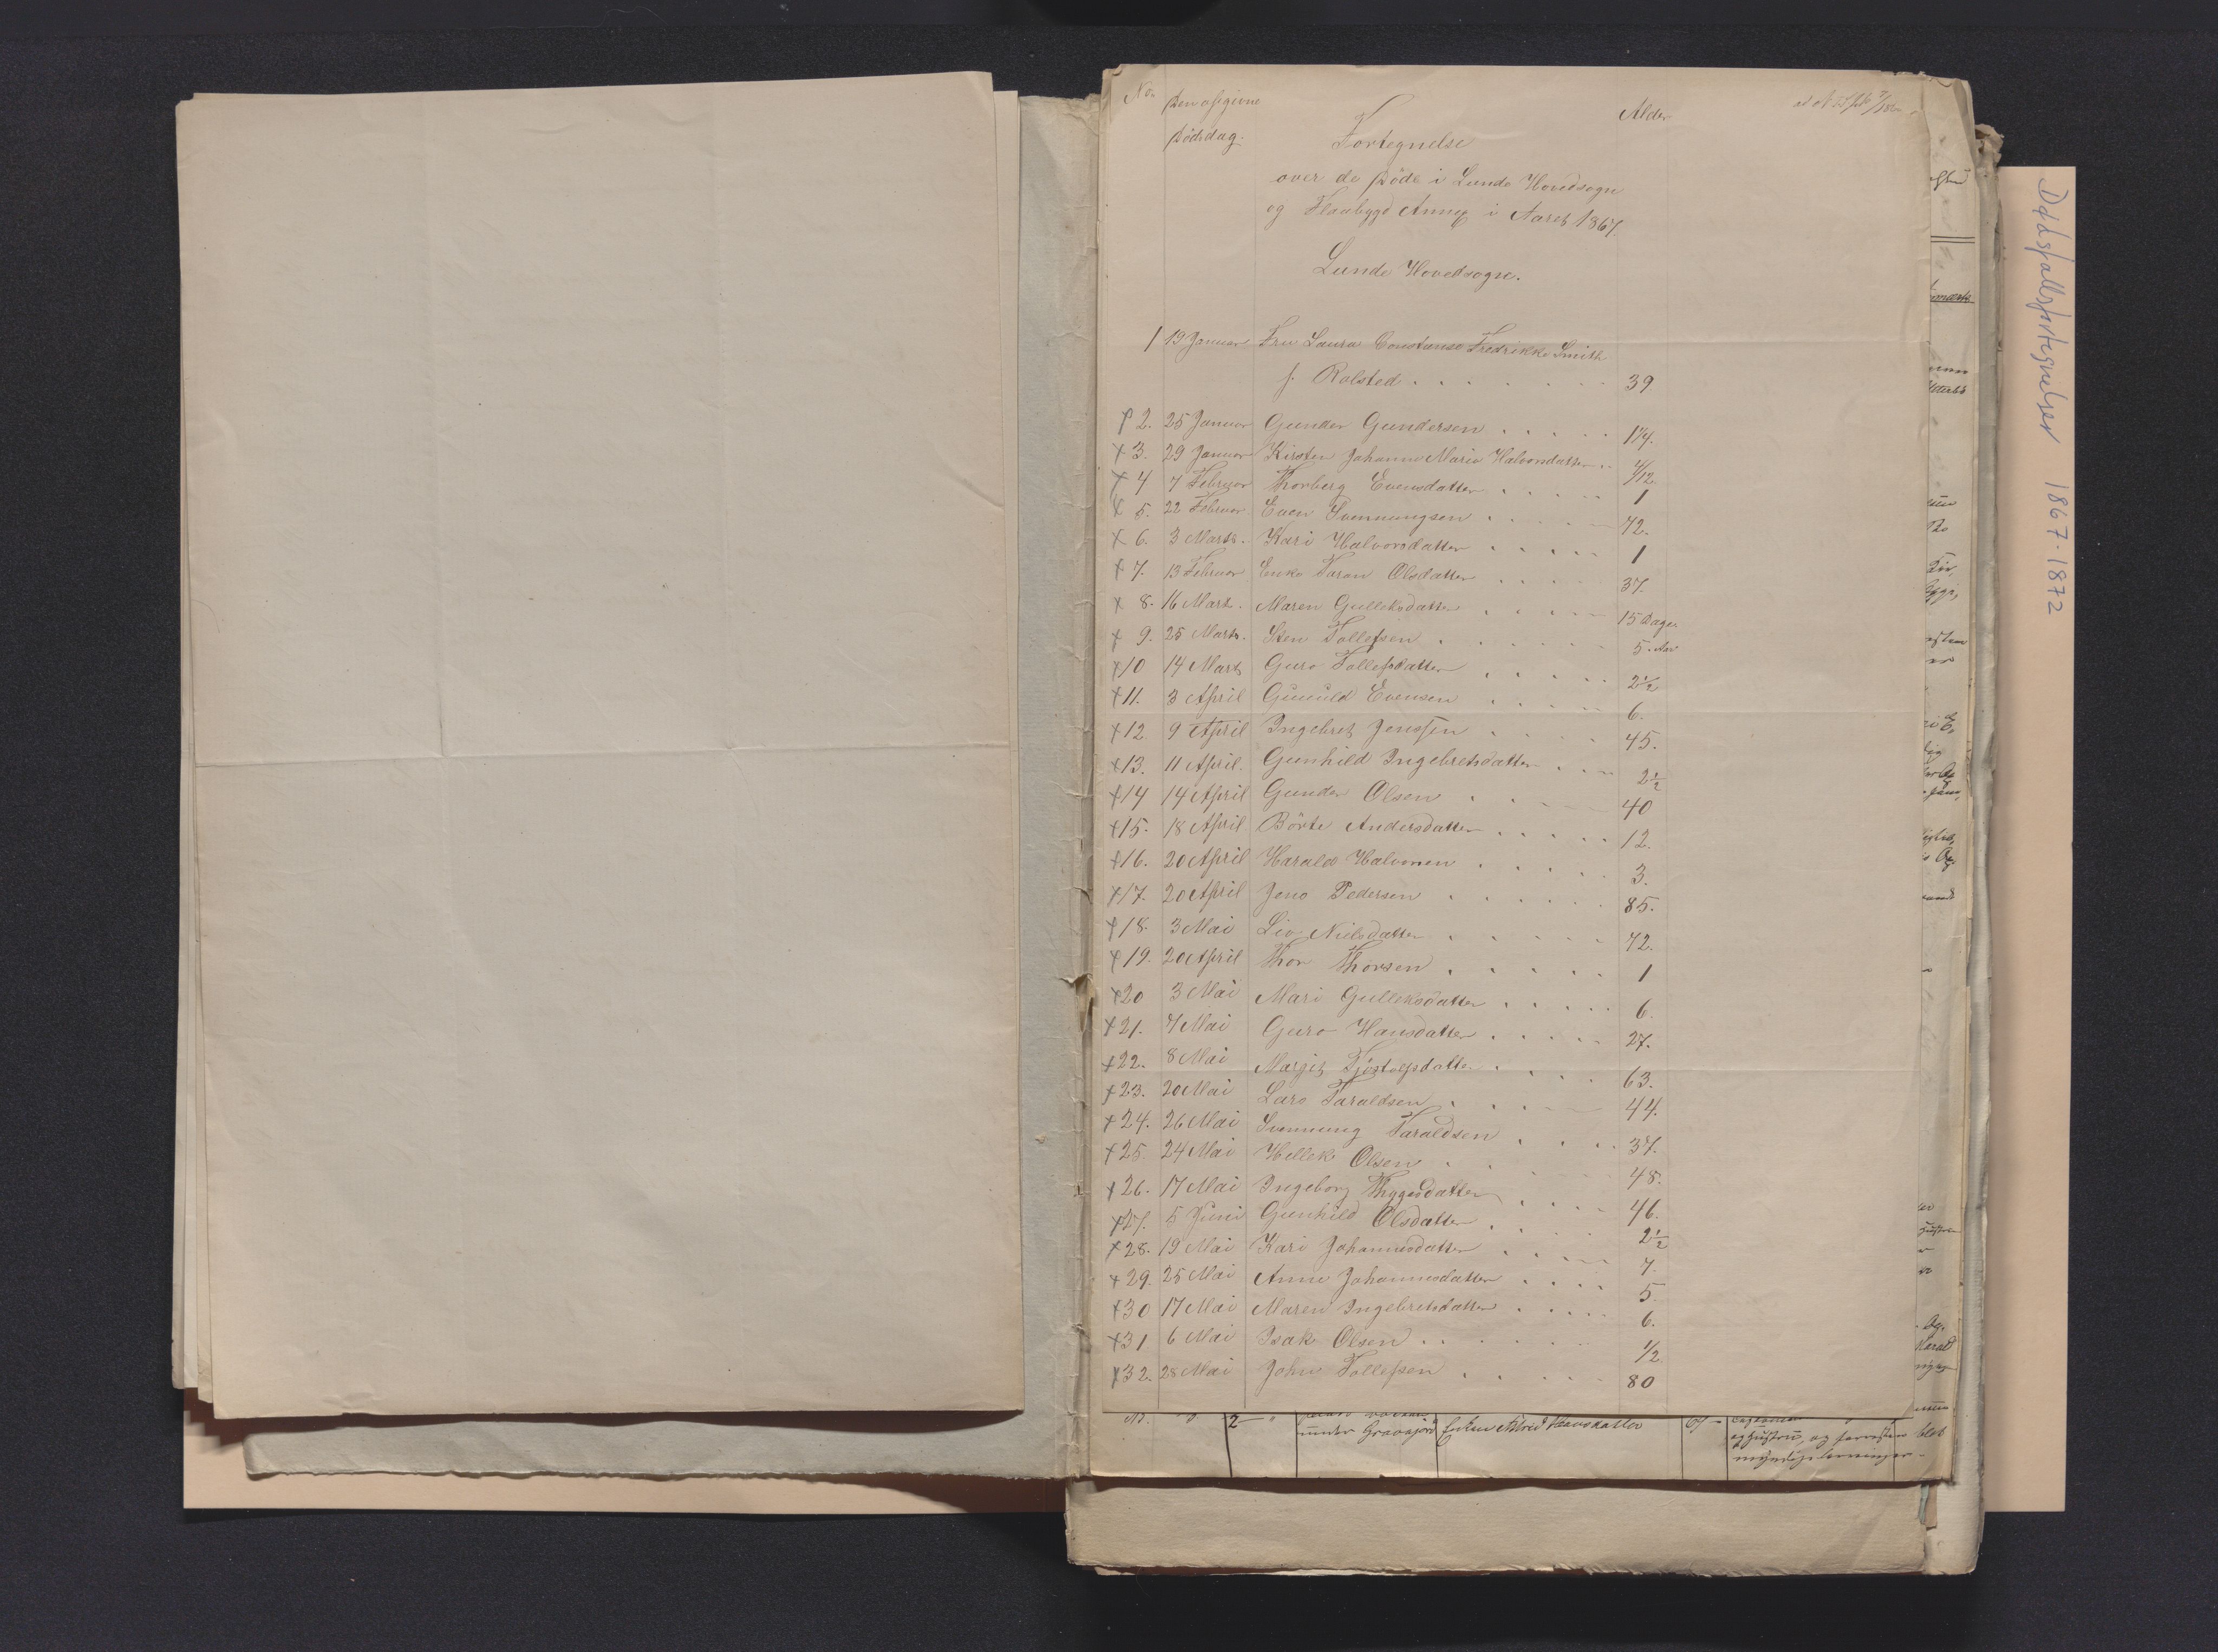 No.
den opgivne
Dödsdag.
Alder
Fortegnelse
over de Döde i Lunde Hovedsogn
og Flaabygd Annex i Aaret 1867.
Lunde Hovedsogn.
1 19 Januar Fru Laura Constanse Fredrikke Smith
f. Rolsted . . . . . . . 39
+ 2. 25 Januar Gunder Gundersen . . . . . 1 1/4.
+ 3. 29 Januar Kirsten Johanne Marie Halvorsdatter . . 4/12.
+ 4 7 Februar Thorberg Evensdatter . . . . . 1
+ 5. 22 Februar Even Svennungsen . . . . 72.
+ 6. 3 Marts. Kari Halvorsdatter . . . . . 1
+ 7. 13 Februar Enke Taran Olsdatter . . . . 37.
+ 8. 16 Marts. Maren Gulleksdatter . . . . 15 Dage
+ 9. 25 Marts. Sten Tollefsen . . . . . . 5. Aar
+10 14 Marts Guro Tollefsdatter . . . . . 2 1/2
+11. 3 April Gunuld Evensen . . . . . 6.
+12. 9 April Ingebret Jenssen . . . . . 45.
+13. 11 April. Gunhild Ingebretsdatter . . . 2 1/2
+14 14 April Gunder Olsen . . . . . 40
+15. 18 April Börte Andersdatter . . . . . 12.
+16. 20 April Harald Halvorsen . . . . . 3.
+17. 20 April Jens Pedersen . . . . . . 85.
+18. 3 Mai Liv Nielsdatter . . . . . 72.
+19. 20 April Thor Thorsen . . . . . 1
+20 3 Mai Mari Gulleksdatter . . . . . 6.
+21. 7 Mai Guro Hansdatter . . . . . 27.
+22. 8 Mai Margit Tjöstolfsdatter . . . . 63.
+23. 20 Mai Lars Taraldsen . . . . 44.
+24. 26 Mai Svennung Taraldsen . . . . 37.
+25. 24 Mai Hellek Olsen . . . . 48.
+26. 17 Mai Ingeborg Thygesdatter . . . . 46.
+27. 5 Juni Gunhild Olsdatter . . . . 2 1/2
+28. 19 Mai Kari Johannesdatter . . . . 7.
+29. 25 Mai Anne Johannesdatter . . . . 5.
+30 17 Mai Maren Ingebretsdatter . . . . 6.
+31 6 Mai Isak Olsen . . . . . 1/2
+32. 28 Mai John Tollefsen . . . . . 80
2 under Gravasjord Enken Hansdatter
Dødsfallsfortegnelser 1867-1872